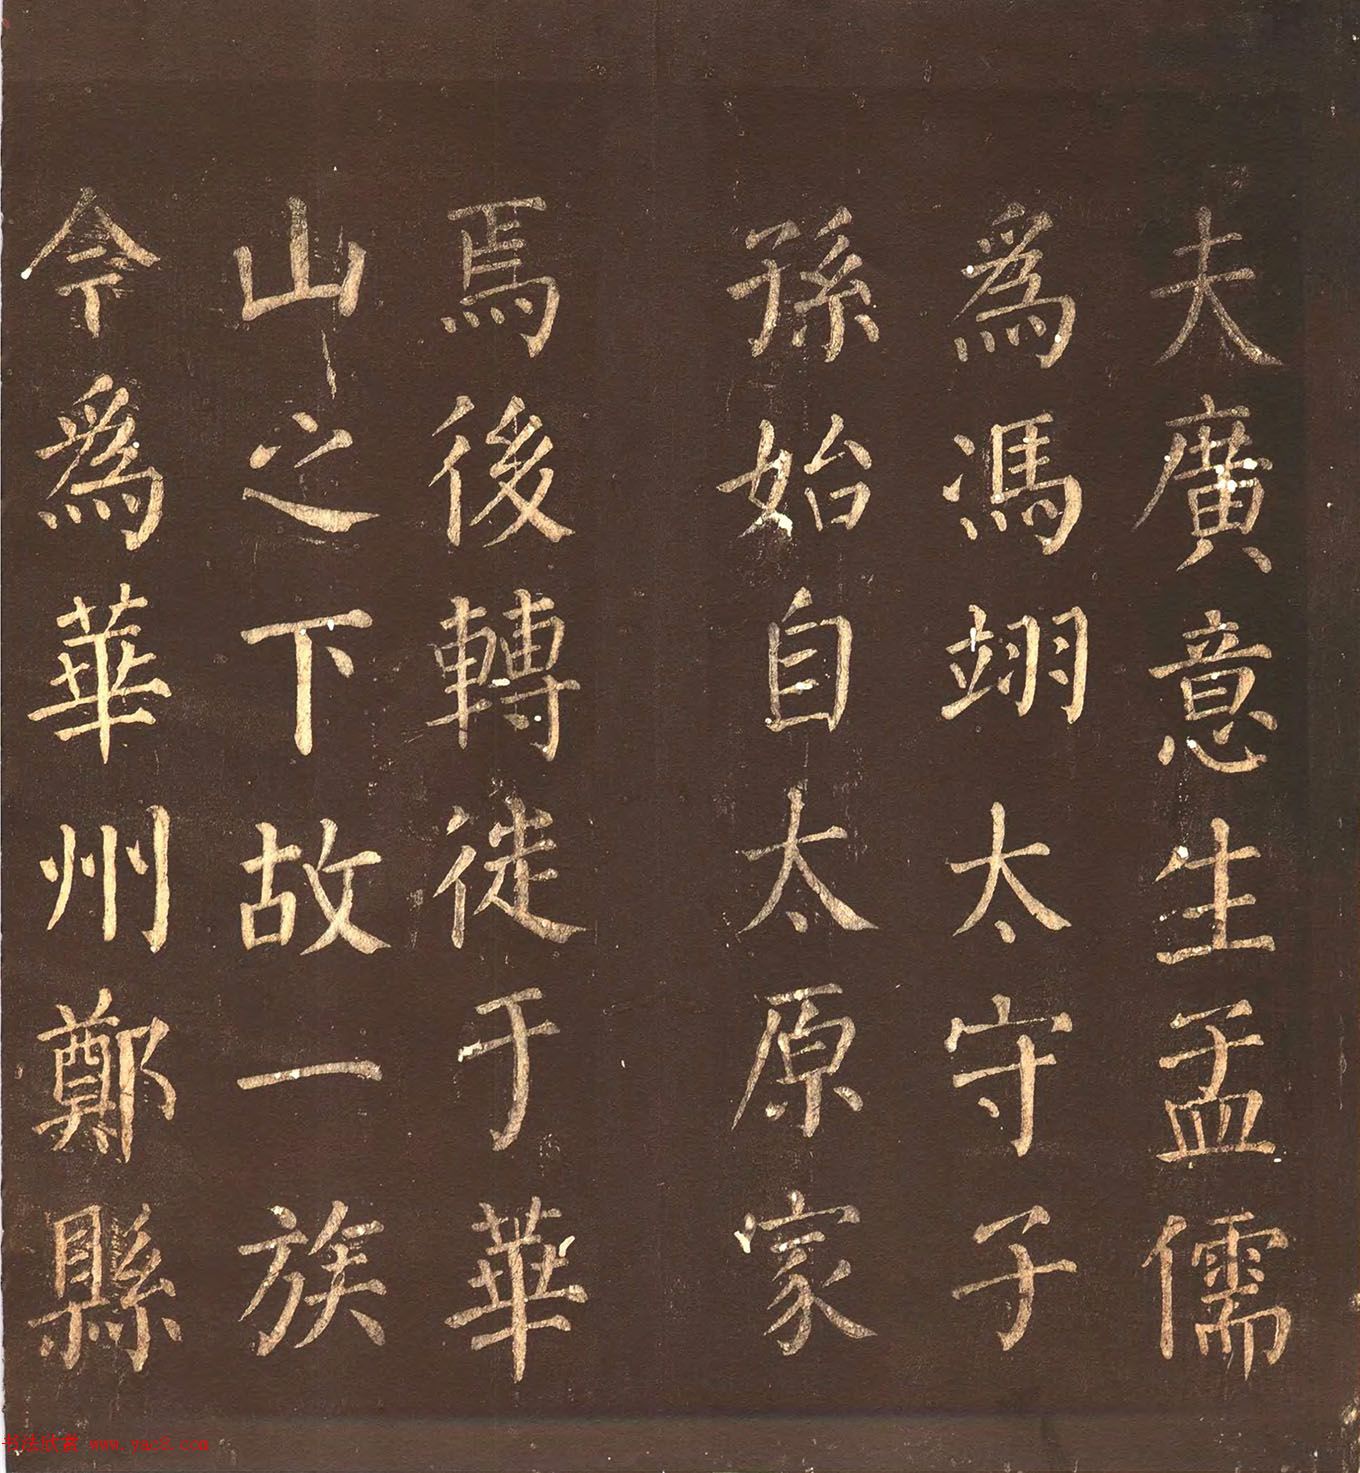 夫廣意生孟儒
為馮翊太守子
孫始自太原家
焉後轉徙于華
山之下故一族
今為華州鄭縣
书法欣赏 www.yac8.com